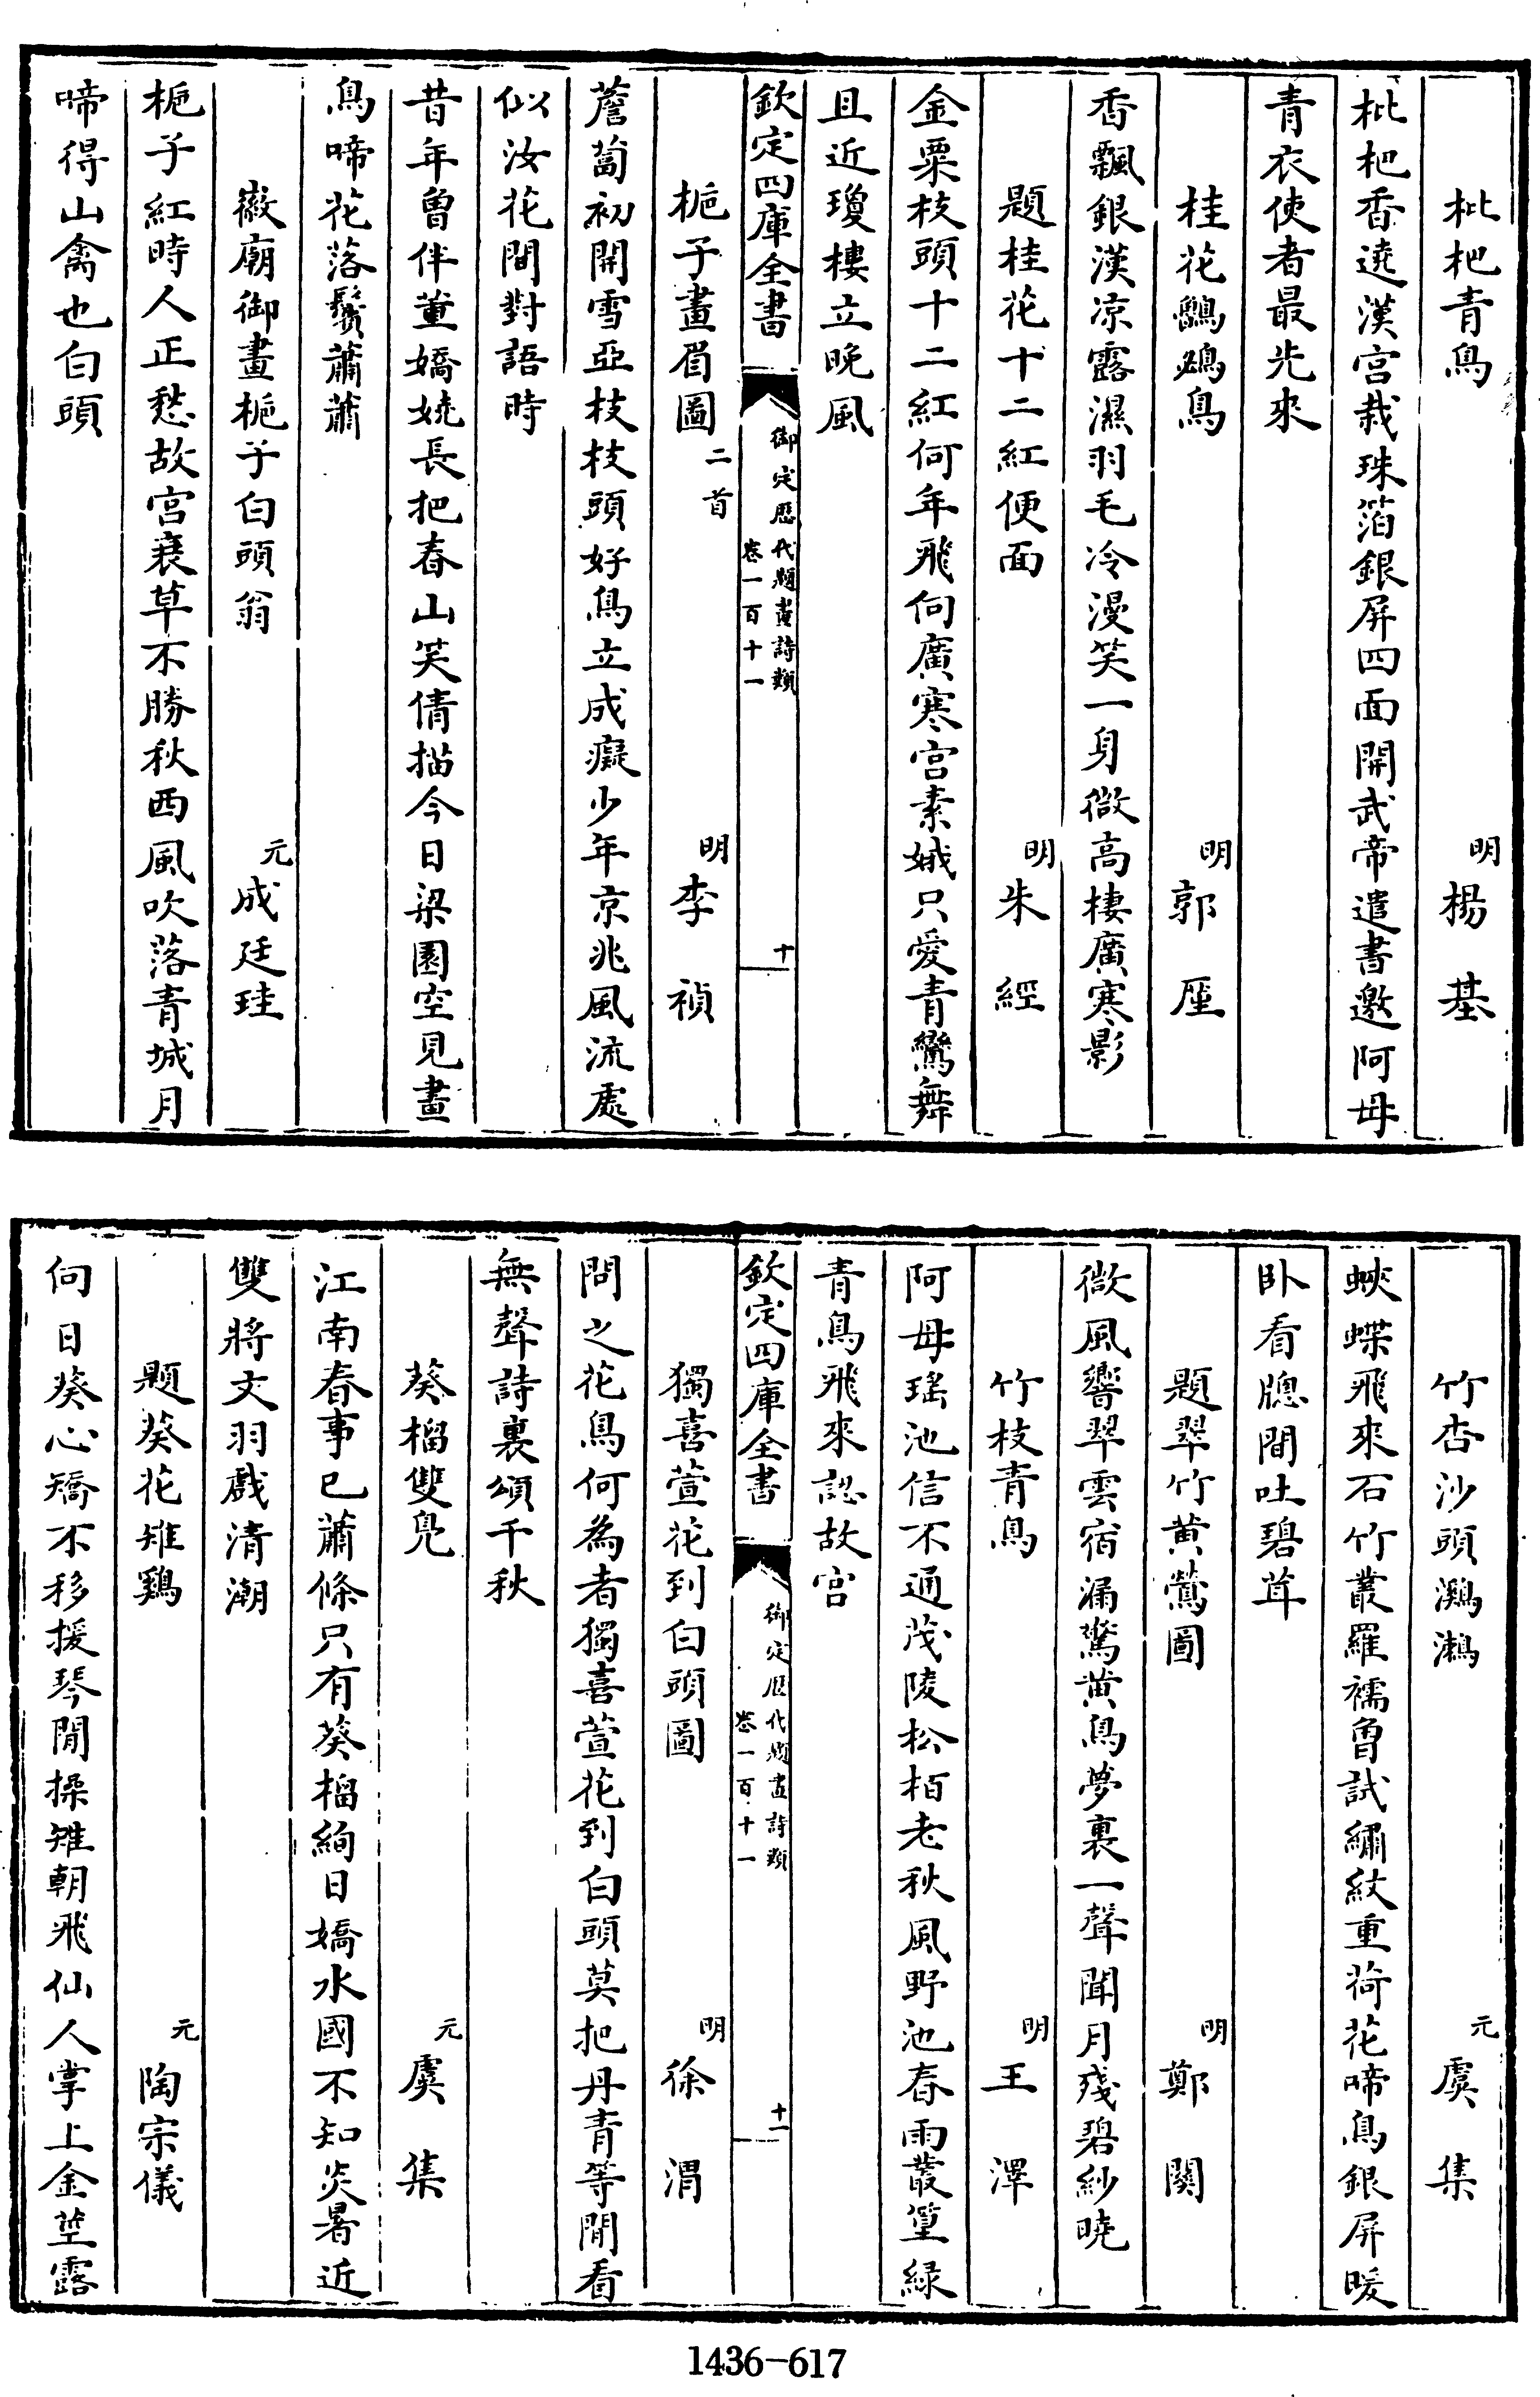 枇杷青鳥 明楊基
枇杷香遶漢宮栽珠箔銀屏四面開武帝遣書邀阿母
青衣使者最先來
桂花鸜鵒鳥 明郭厓
香飄銀漢凉露濕羽毛冷漫笑一身微高棲廣寒影
題桂花十二紅便面 明朱經
金粟枝頭十二紅何年飛向廣寒宮素娥只愛青鸞舞
且近瓊樓立晚風
欽定四庫全書 御定歷代題畫詩類 卷一百十一 十
梔子畫眉圖二首 明李禎
薝蔔初開雪亞枝枝頭好鳥立成癡少年京兆風流處
似汝花間對語時
昔年曾伴董嬌嬈長把春山笑倩描今日梁園空見畫
鳥啼花落鬢蕭蕭
徽廟御畫梔子白頭翁 元成廷珪
梔子紅時人正愁故宮衰草不勝秋西風吹落青城月
啼得山禽也白頭
竹杏沙頭鸂鶒 元虞集
蛺蝶飛來石竹叢羅襦曾試繡紋重荷花啼鳥銀屏暖
卧看牕間吐碧茸
題翠竹黄鶯圖 明鄭關
微風響翠雲宿漏驚黄鳥夢裏一聲聞月殘碧紗曉
竹枝青鳥 明王澤
阿母瑤池信不通茂陵松栢老秋風野池春雨叢篁緑
青鳥飛來認故宮
欽定四庫全書 御定歷代題畫詩類 卷一百十一 十一
獨喜萱花到白頭圖 明徐渭
問之花鳥何為者獨喜萱花到白頭莫把丹青等閒看
無聲詩裏頌千秋
葵榴雙鳧 元虞集
江南春事已蕭條只有葵榴絢日嬌水國不知炎暑近
雙將文羽戲清潮
題葵花雉鷄 元陶宗儀
向日葵心矯不移援琴閒操雉朝飛仙人掌上金莖露
1436-617